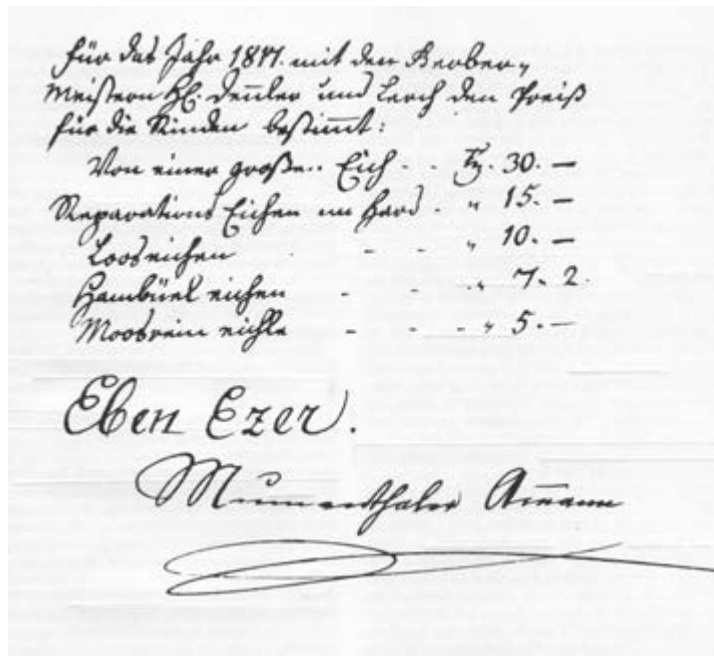 für das Jahr 1811. mit den Gerber-
meistern HE. Dennler und Lerch den Preiß
für die Rinden bestimmt:
Von einer großen Eich - - Fr. 30. —
Reparations Eichen im Hard - " 15. —
Looseichen - - " 10. —
Hambüel eichen - - " 7. 2.
Moosrein eichle - - - " 5. —
Eben Ezer.
Mumenthaler Amann